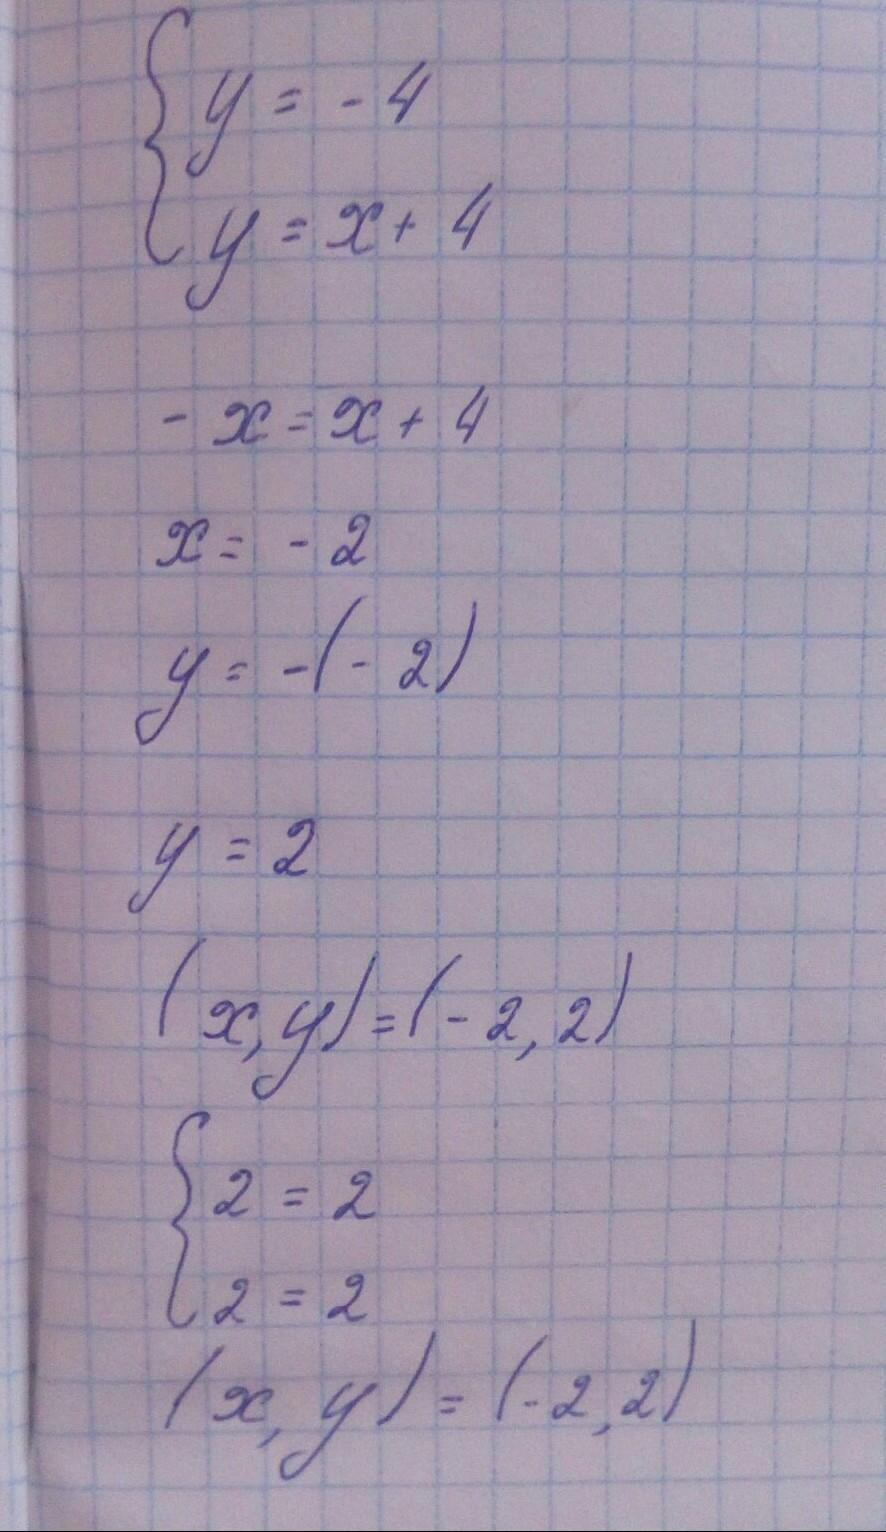 { y = - 4
y = x + 4
- x = x + 4
x = - 2
y = - ( - 2 )
y = 2
( x, y ) = ( - 2, 2 )
{ 2 = 2
2 = 2
( x, y ) = ( - 2, 2 )